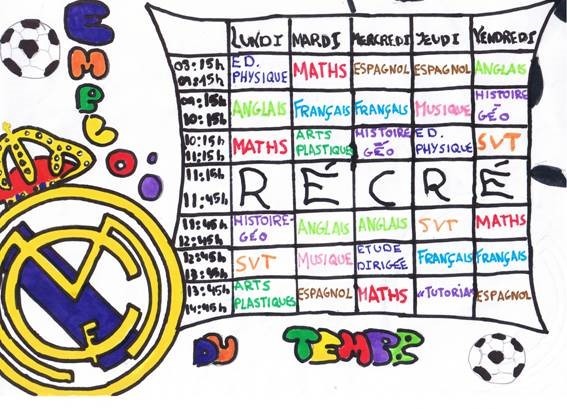 EMPLOI
LUNDI MARDI MERCREDI JEUDI VENDREDI
08:15h
09:15h
ED.
PHYSIQUE
MATHS
ESPAGNOL
ESPAGNOL
ANGLAIS
09:15h
10:15h
ANGLAIS
FRANÇAIS
FRANÇAIS
MUSIQUE
HISTOIRE
GÉO
10:15h
11:15h
MATHS
ARTS
PLASTIQUES
HISTOIRE
GÉO
ED.
PHYSIQUE
SVT
11:15h
11:45h
RÉCRÉ
11:45h
12:45h
HISTOIRE-
GÉO
ANGLAIS
ANGLAIS
SVT
MATHS
12:45h
13:45h
SVT
MUSIQUE
ETUDE
DIRIGÉE
FRANÇAIS
FRANÇAIS
13:45h
14:45h
ARTS
PLASTIQUES
ESPAGNOL
MATHS
«TUTORIA»
ESPAGNOL
DU TEMPS